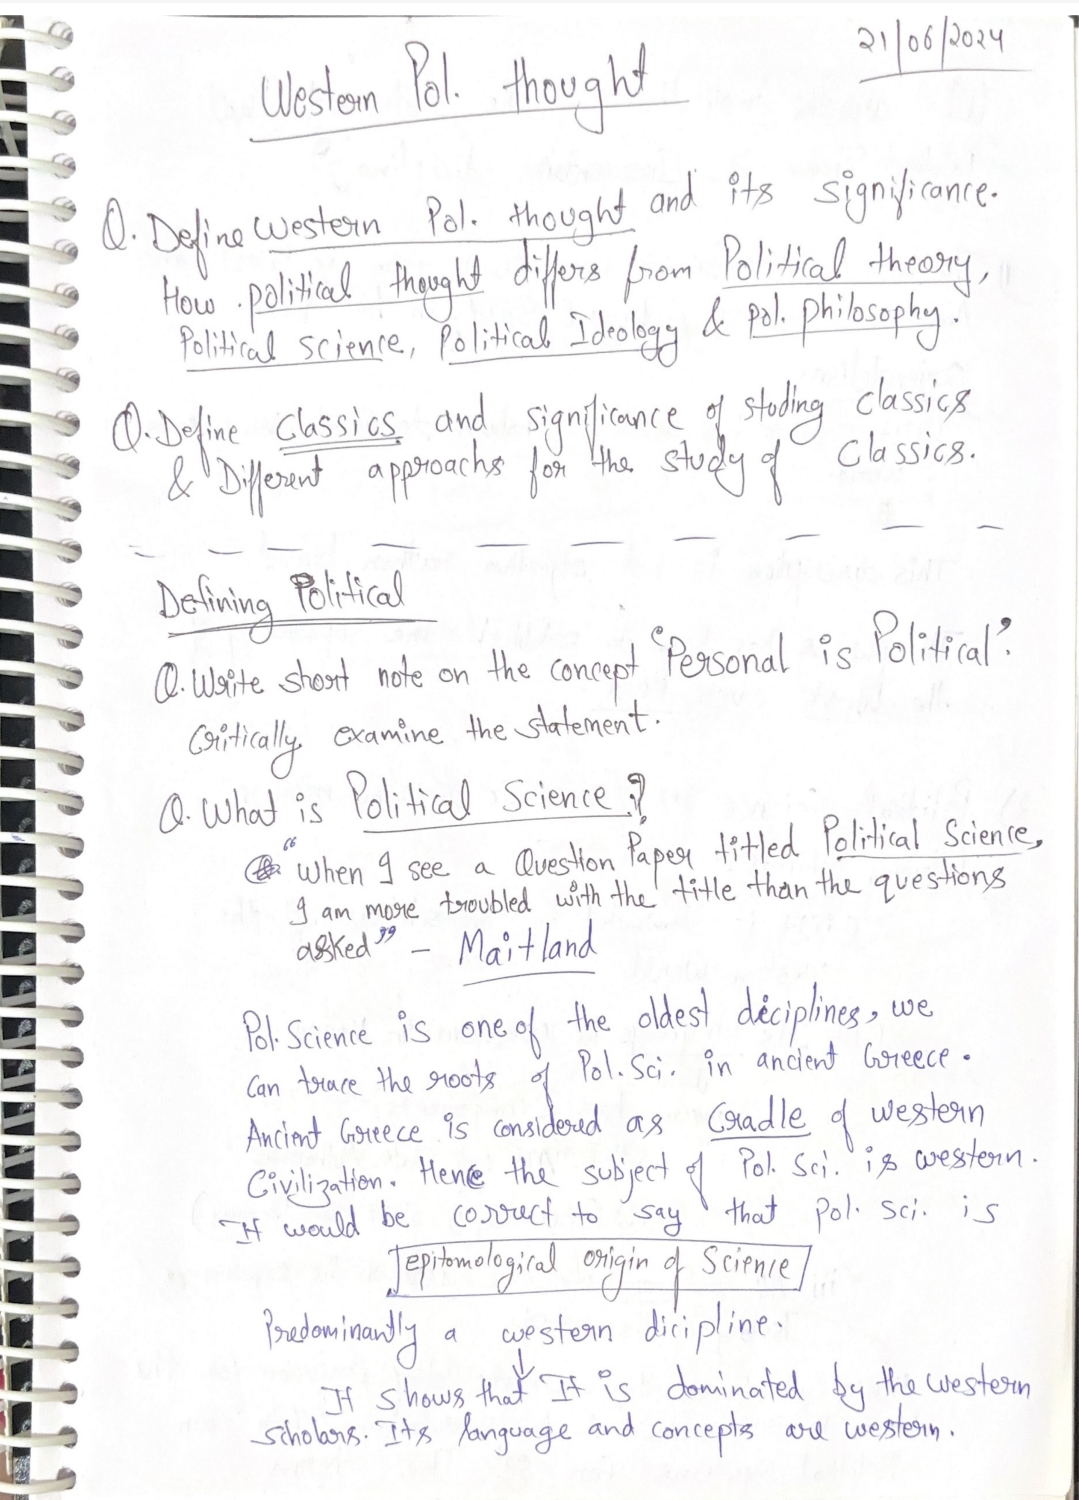 21/06/2024
Western Pol. thought
Q. Define Western Pol. thought and its significance.
How political thought differs from Political theory,
Political science, Political Ideology & pol. philosophy.
Q. Define Classics and significance of studing classics
& Different approachs for the study of Classics.
Defining Political
Q. Write short note on the concept 'Personal is Political'.
Critically examine the statement.
Q. What is Political Science ?
"When I see a Question Paper titled Political Science,
I am more troubled with the title than the questions
asked" - Maitland
Pol. Science is one of the oldest diciplines, we
can trace the roots of Pol. Sci. in ancient Greece.
Ancient Greece is considered as Cradle of western
Civilization. Hence the subject of Pol. Sci. is western.
It would be correct to say that pol. sci. is
epitomological origin of Science
Predominantly a western dicipline.
↓
It shows that It is dominated by the western
scholars. Its language and concepts are western.